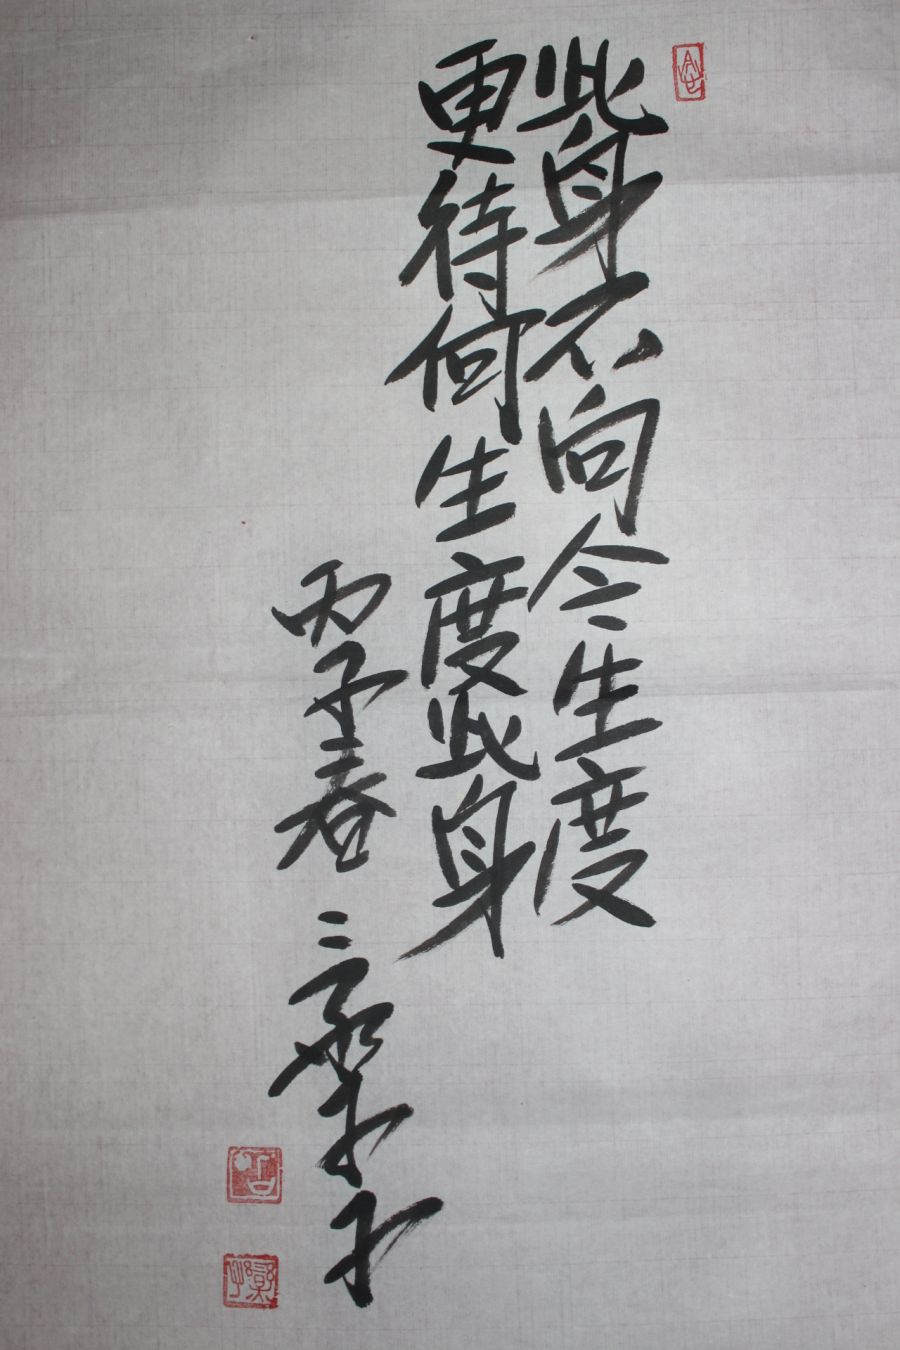 此身不向今生度
更待何生度此身
丙子春